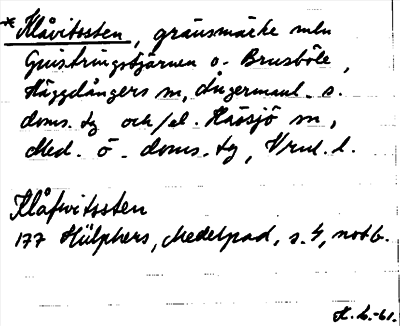 *Klåvitssten, gränsmärke mln
Gnistringstjärnen o. Brusböle,
Häggdångers sn, Ångermanl. s.
doms. tg och/el. Haösjö sn,
Med. ö. doms. tg, Vrnl. l.
Klåfwitssten
177 Hülphers, Medelpad, s. 4, not b.
H. L. -61.